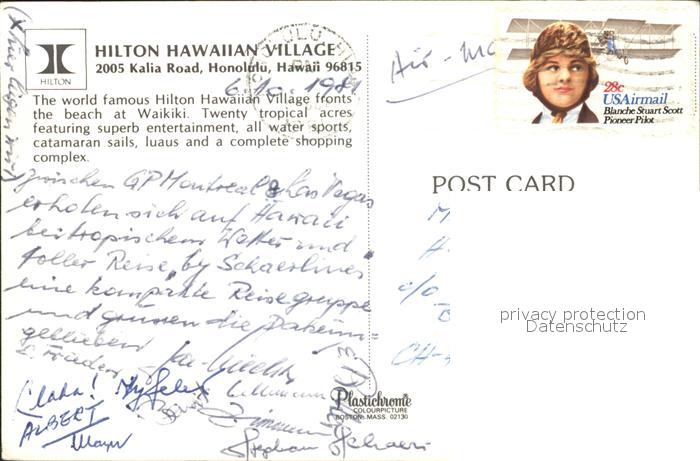 HILTON HAWAIIAN VILLAGE
2005 Kalia Road, Honolulu, Hawaii 96815
HILTON
6.10.1981
The world famous Hilton Hawaiian Village fronts
the beach at Waikiki. Twenty tropical acres
featuring superb entertainment, all water sports,
catamaran sails, luaus and a complete shopping
complex.
Zwischen GP Montreal & Las Vegas
erholen sich auf Hawaii
bei tropischem Wetter und
toller Reise by Schaerlines
eine kompakte Reisegruppe
und grüssen die Daheim=
gebliebenen
ALBERT
Mayr
Stephan Schaer
Plastichrome
COLOURPICTURE
BOSTON, MASS. 02130
Air-Ma
28c
USAirmail
Blanche Stuart Scott
Pioneer Pilot
POST CARD
M
H.
c/o
CH-
privacy protection
Datenschutz